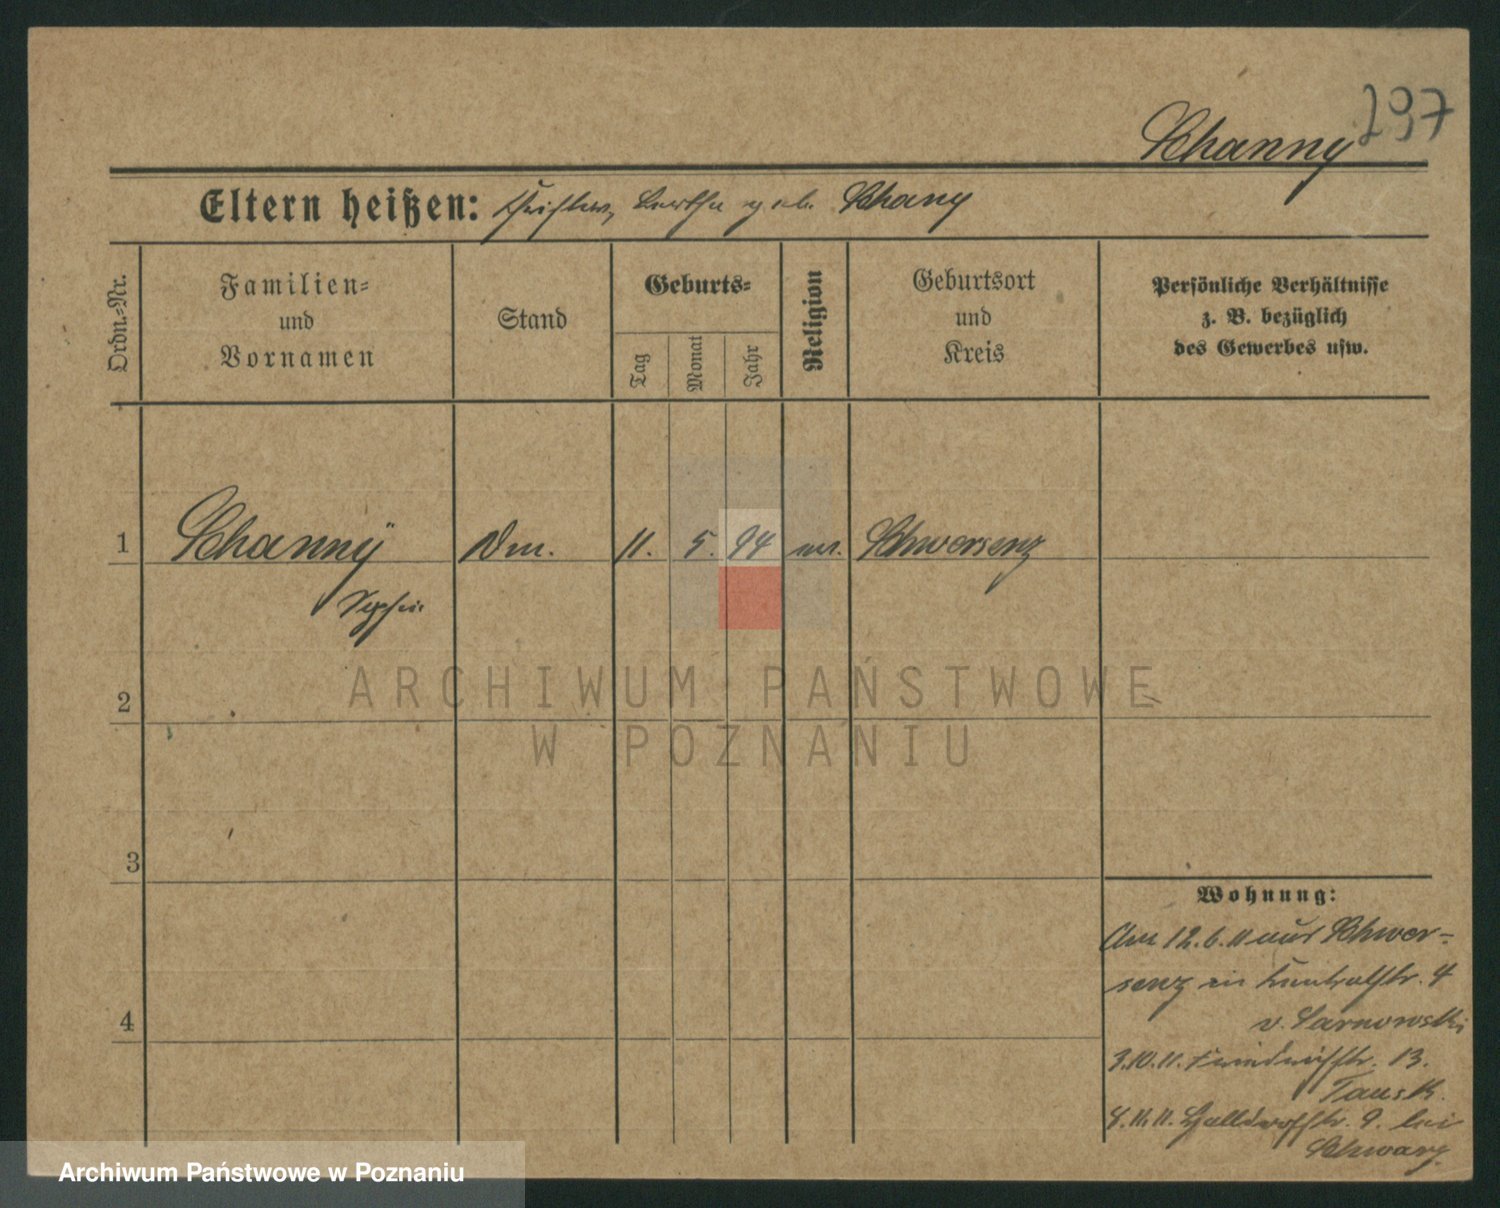 297
Schanny
Eltern heißen: geb. Schany
Ordn.-Nr.
Familien-
und
Vornamen
Stand
Geburts-
Tag
Monat
Jahr
Religion
Geburtsort
und
Kreis
Persönliche Verhältnisse
z. B. bezüglich
des Gewerbes usw.
1 Schanny 11. 5. 94 Schwersenz
Sophie
2
3
4
Wohnung:
Am 12.6.11 aus Schwer-
senz in 4
v. Sarnowski
3.10.11. Friedrichstr. 13.
Tausk.
9. bei
Schwarz
ARCHIWUM PAŃSTWOWE
W POZNANIU
Archiwum Państwowe w Poznaniu